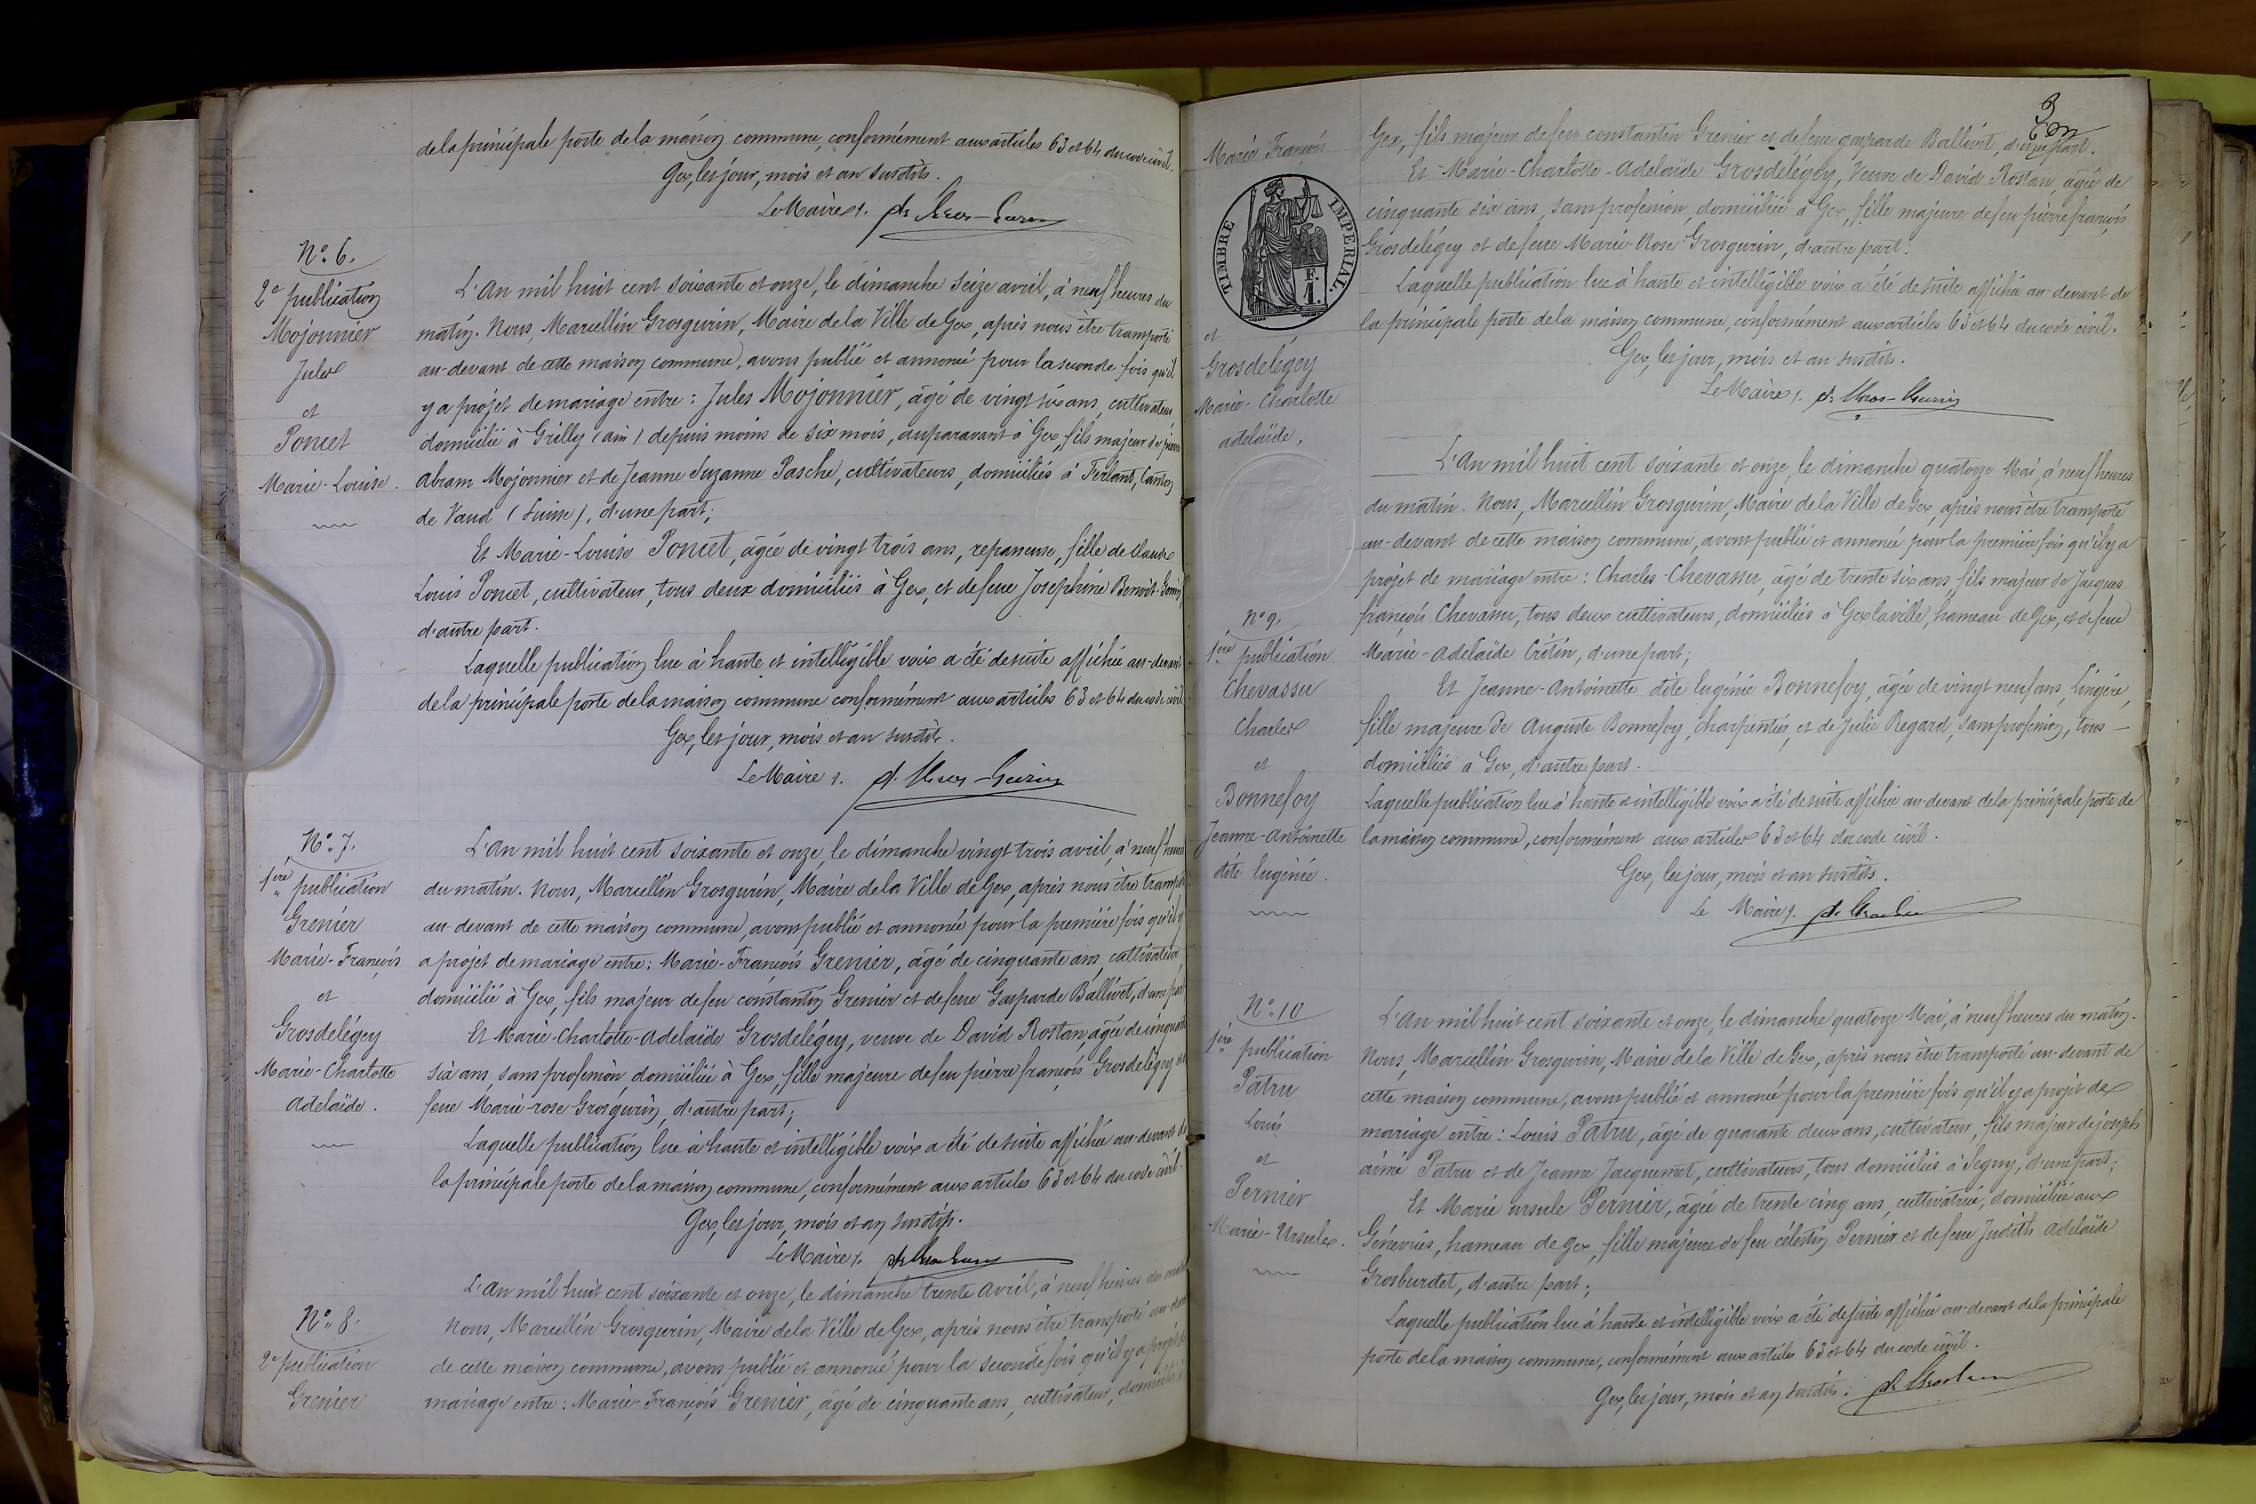 de la principale porte de la maison commune, conformément aux articles 63 et 64 du code civil.
Gex, les jour, mois et an susdits.
Le Maire
N° 6.
2e publication
Mojonnier
Jules
et
Poncet
Marie-Louise.
L'An mil huit cent soixante et onze, le dimanche seize avril, à neuf heures du
matin. Nous, Marcellin Grosgurin, Maire de la Ville de Gex, après nous être transporté
au-devant de cette maison commune, avons publié et annoncé pour la seconde fois qu'il
y a projet de mariage entre : Jules Mojonnier, âgé de vingt six ans, cultivateur
domicilié à Grilly (ain) depuis moins de six mois, auparavant à Gex, fils majeur de
abram Mojonnier et de Jeanne Suzanne Pasche, cultivateurs, domiciliés à Ferlans, Canton
de Vaud (Suisse), d'une part;
Et Marie-Louise Poncet, âgée de vingt trois ans, repasseuse, fille de Claude
Louis Poncet, cultivateur, tous deux domiciliés à Gex, et de feue Josephine Benoit
d'autre part.
Laquelle publication lue à haute et intelligible voix a été de suite affichée au-devant
de la principale porte de la maison commune conformément aux articles 63 et 64 du code civil
Gex, les jour, mois et an susdits.
Le Maire
N° 7.
1ère publication
Grenier
Marie-François
et
Grosdelégey
Marie-Charlotte
adelaïde.
L'An mil huit cent soixante et onze, le dimanche vingt trois avril, à neuf heures
du matin. Nous, Marcellin Grosgurin, Maire de la Ville de Gex, après nous être transporté
au-devant de cette maison commune, avons publié et annoncé pour la première fois qu'il y
a projet de mariage entre : Marie-François Grenier, âgé de cinquante ans, cultivateur,
domicilié à Gex, fils majeur de feu constantin Grenier et de feue Gasparde Ballivet, d'une part
Et Marie-Charlotte-adelaïde Grosdelégey, veuve de David Rostan, âgée de cinquante
six ans, sans profession domiciliée à Gex, fille majeure de feu pierre françois Grosdelégey et
feue Marie-rose Grosgurin, d'autre part;
Laquelle publication lue à haute et intelligible voix a été de suite affichée au-devant de
la principale porte de la maison commune, conformément aux articles 63 et 64 du code civil.
Gex, les jour, mois et an susdits.
Le Maire
N° 8.
2e publication
Grenier
L'An mil huit cent soixante et onze, le dimanche trente avril, à neuf heures du matin
Nous, Marcellin Grosgurin, Maire de la Ville de Gex, après nous être transporté au-devant
de cette maison commune, avons publié et annoncé pour la seconde fois qu'il y a projet de
mariage entre : Marie-François Grenier, âgé de cinquante ans, cultivateur, domicilié à
3
Marie François
TIMBRE IMPÉRIAL
1 F.
et
Grosdelégey
Marie-Charlotte
adelaïde.
Gex, fils majeur de feu constantin Grenier et de feue gasparde Ballivet, d'une part.
Et Marie-Charlotte-Adelaïde Grosdelégey, Veuve de David Rostan, âgée de
cinquante six ans, sans profession, domiciliée à Gex, fille majeure de feu pierre françois
Grosdelégey et de feue Marie-Rose Grosgurin, d'autre part.
Laquelle publication lue à haute et intelligible voix a été de suite affichée au-devant de
la principale porte de la maison commune, conformément aux articles 63 et 64 du code civil.
Gex, les jour, mois et an susdits.
Le Maire
N° 9.
1ère publication
Chevassu
Charles
et
Bonnefoy
Jeanne-Antoinette
dite Eugénie.
L'An mil huit cent soixante et onze, le dimanche quatorze Mai, à neuf heures
du matin. Nous, Marcellin Grosgurin, Maire de la Ville de Gex, après nous être transporté
au-devant de cette maison commune, avons publié et annoncé pour la première fois qu'il y a
projet de mariage entre : Charles Chevassu, âgé de trente six ans, fils majeur de Jacques
françois Chevassu, tous deux cultivateurs, domiciliés à Gex la ville, hameau de Gex, et de feue
Marie-Adelaïde Crétin, d'une part;
Et Jeanne-Antoinette dite Eugénie Bonnefoy, âgée de vingt neuf ans, Lingère,
fille majeure de Auguste Bonnefoy, charpentier, et de Julie Regard, sans profession, tous
domiciliés à Gex, d'autre part.
Laquelle publication lue à haute et intelligible voix a été de suite affichée au-devant de la principale porte de
la maison commune, conformément aux articles 63 et 64 du code civil.
Gex, les jour, mois et an susdits.
Le Maire
N° 10
1ère publication
Patru
Louis
et
Pernier
Marie-Ursule.
L'An mil huit cent soixante et onze, le dimanche quatorze Mai, à neuf heures du matin.
Nous, Marcellin Grosgurin, Maire de la Ville de Gex, après nous être transporté au-devant de
cette maison commune, avons publié et annoncé pour la première fois qu'il y a projet de
mariage entre : Louis Patru, âgé de quarante deux ans, cultivateur, fils majeur de joseph
aimé Patru et de Jeanne Jacquemet, cultivateurs, tous domiciliés à Segny, d'une part;
Et Marie ursule Pernier, âgée de trente cinq ans, cultivatrice, domiciliée aux
Génevriés, hameau de gex, fille majeure de feu célestin Pernier et de feue Judith adelaïde
Grosburdet, d'autre part;
Laquelle publication lue à haute et intelligible voix a été de suite affichée au-devant de la principale
porte de la maison commune, conformément aux articles 63 et 64 du code civil.
Gex, les jour, mois et an susdits.